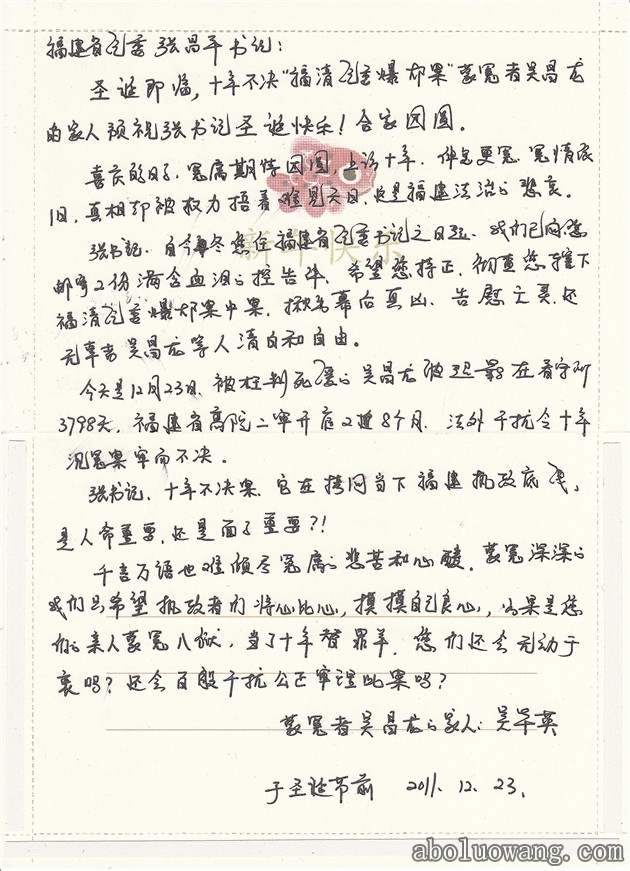 福建省纪委张昌平书记：
圣诞即临，十年不决“福清纪委爆炸案”蒙冤者吴昌龙
的家人预祝张书记圣诞快乐！合家团圆。
喜庆的日子，冤属期待团圆，上访十年，伸冤更冤，冤情依
旧，真相却被权力捂着难见天日，这是福建法治的悲哀。
新年快乐
张书记，自今年冬您任福建省纪委书记之日起，我们已向您
邮寄2份满含血泪的控告件，希望您持正，彻查您辖下
福清纪委爆炸案中案，揪出幕后真凶，告慰亡灵，还
无辜者吴昌龙等人清白和自由。
今天是12月23日，被枉判死缓的吴昌龙被超期在看守所
3798天，福建省高院二审开庭又逾8个月，法外干扰令十年
沉冤案审而不决。
张书记，十年不决案，它在拷问当下福建执政底线，
是人命重要，还是面子重要？！
千言万语也难倾尽冤属的悲苦和心酸，蒙冤深深的
我们只希望执政者们将心比心，摸摸自己良心，如果是您
们的亲人蒙冤入狱，当了十年替罪羊，您们还会无动于
衷吗？还会百般干扰公正审理此案吗？
蒙冤者吴昌龙的家人：吴华英
于圣诞节前 2011.12.23.
aboluowang.com